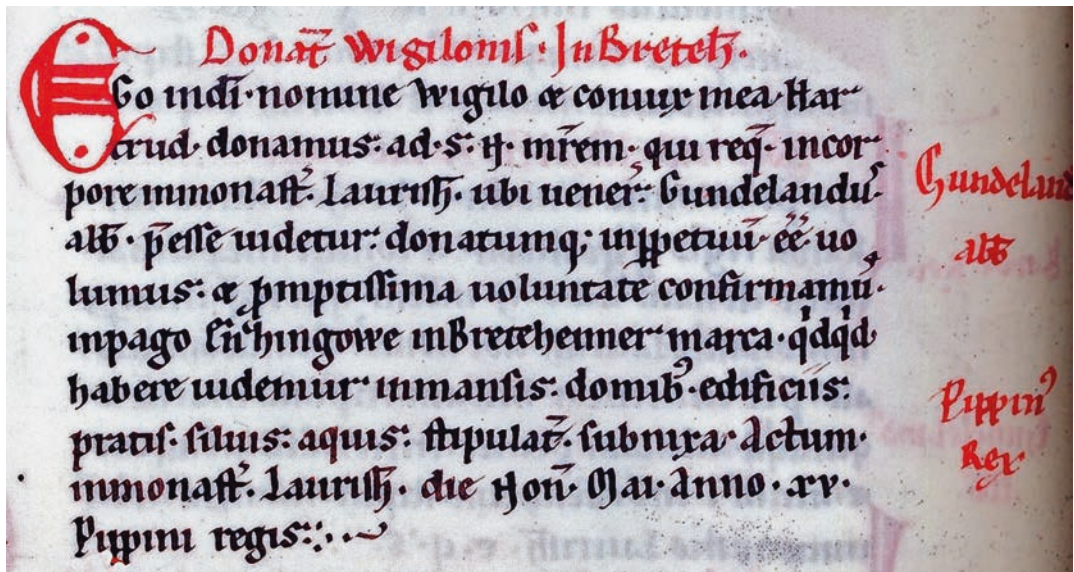 Donat̄ Wigilonis· In Breteh̄·
EGo in di̅· nomine Wigilo & coniux mea· Har
trud· donamus: ad· S· N· mr̄em· qui req̄· in cor
pore in monast̄· Laurish̄· ubi uener̄· Gundelandus
abb̄· p̄esse uidetur: donatumq; inp̱petuū· eē uo
lumus: & p̱mptissima uoluntate confirmamus·
in pago hingowe in Bretehenner marca· qdqd
habere uidemur in mansis: domib; edificiis:
pratis· siluis: aquis: stipulat̄· subnixa· Actum·
in monast̄· Laurish̄· die Non̄· Mai· Anno· xv·
Pippini regis:
Gundeland
abb̄
Pippin⁹
Rex